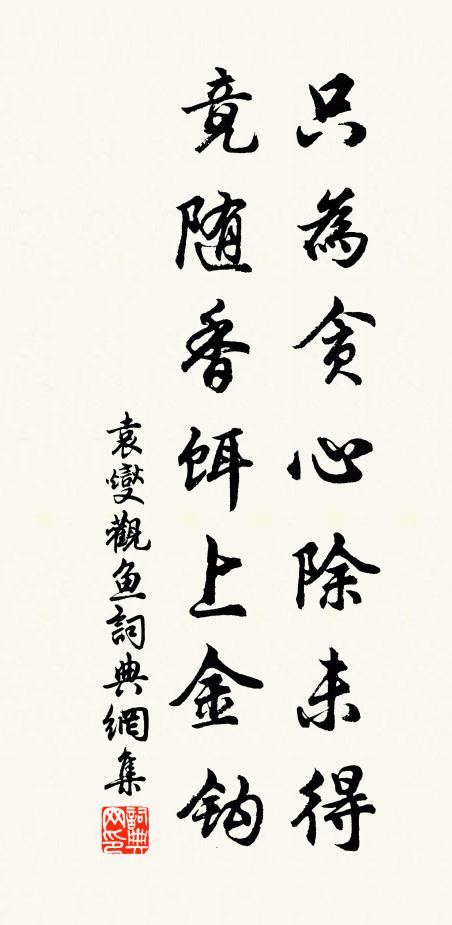 只為贪心除未得
竟随香餌上金钩
袁燮觀鱼詞典網集
詞典网印